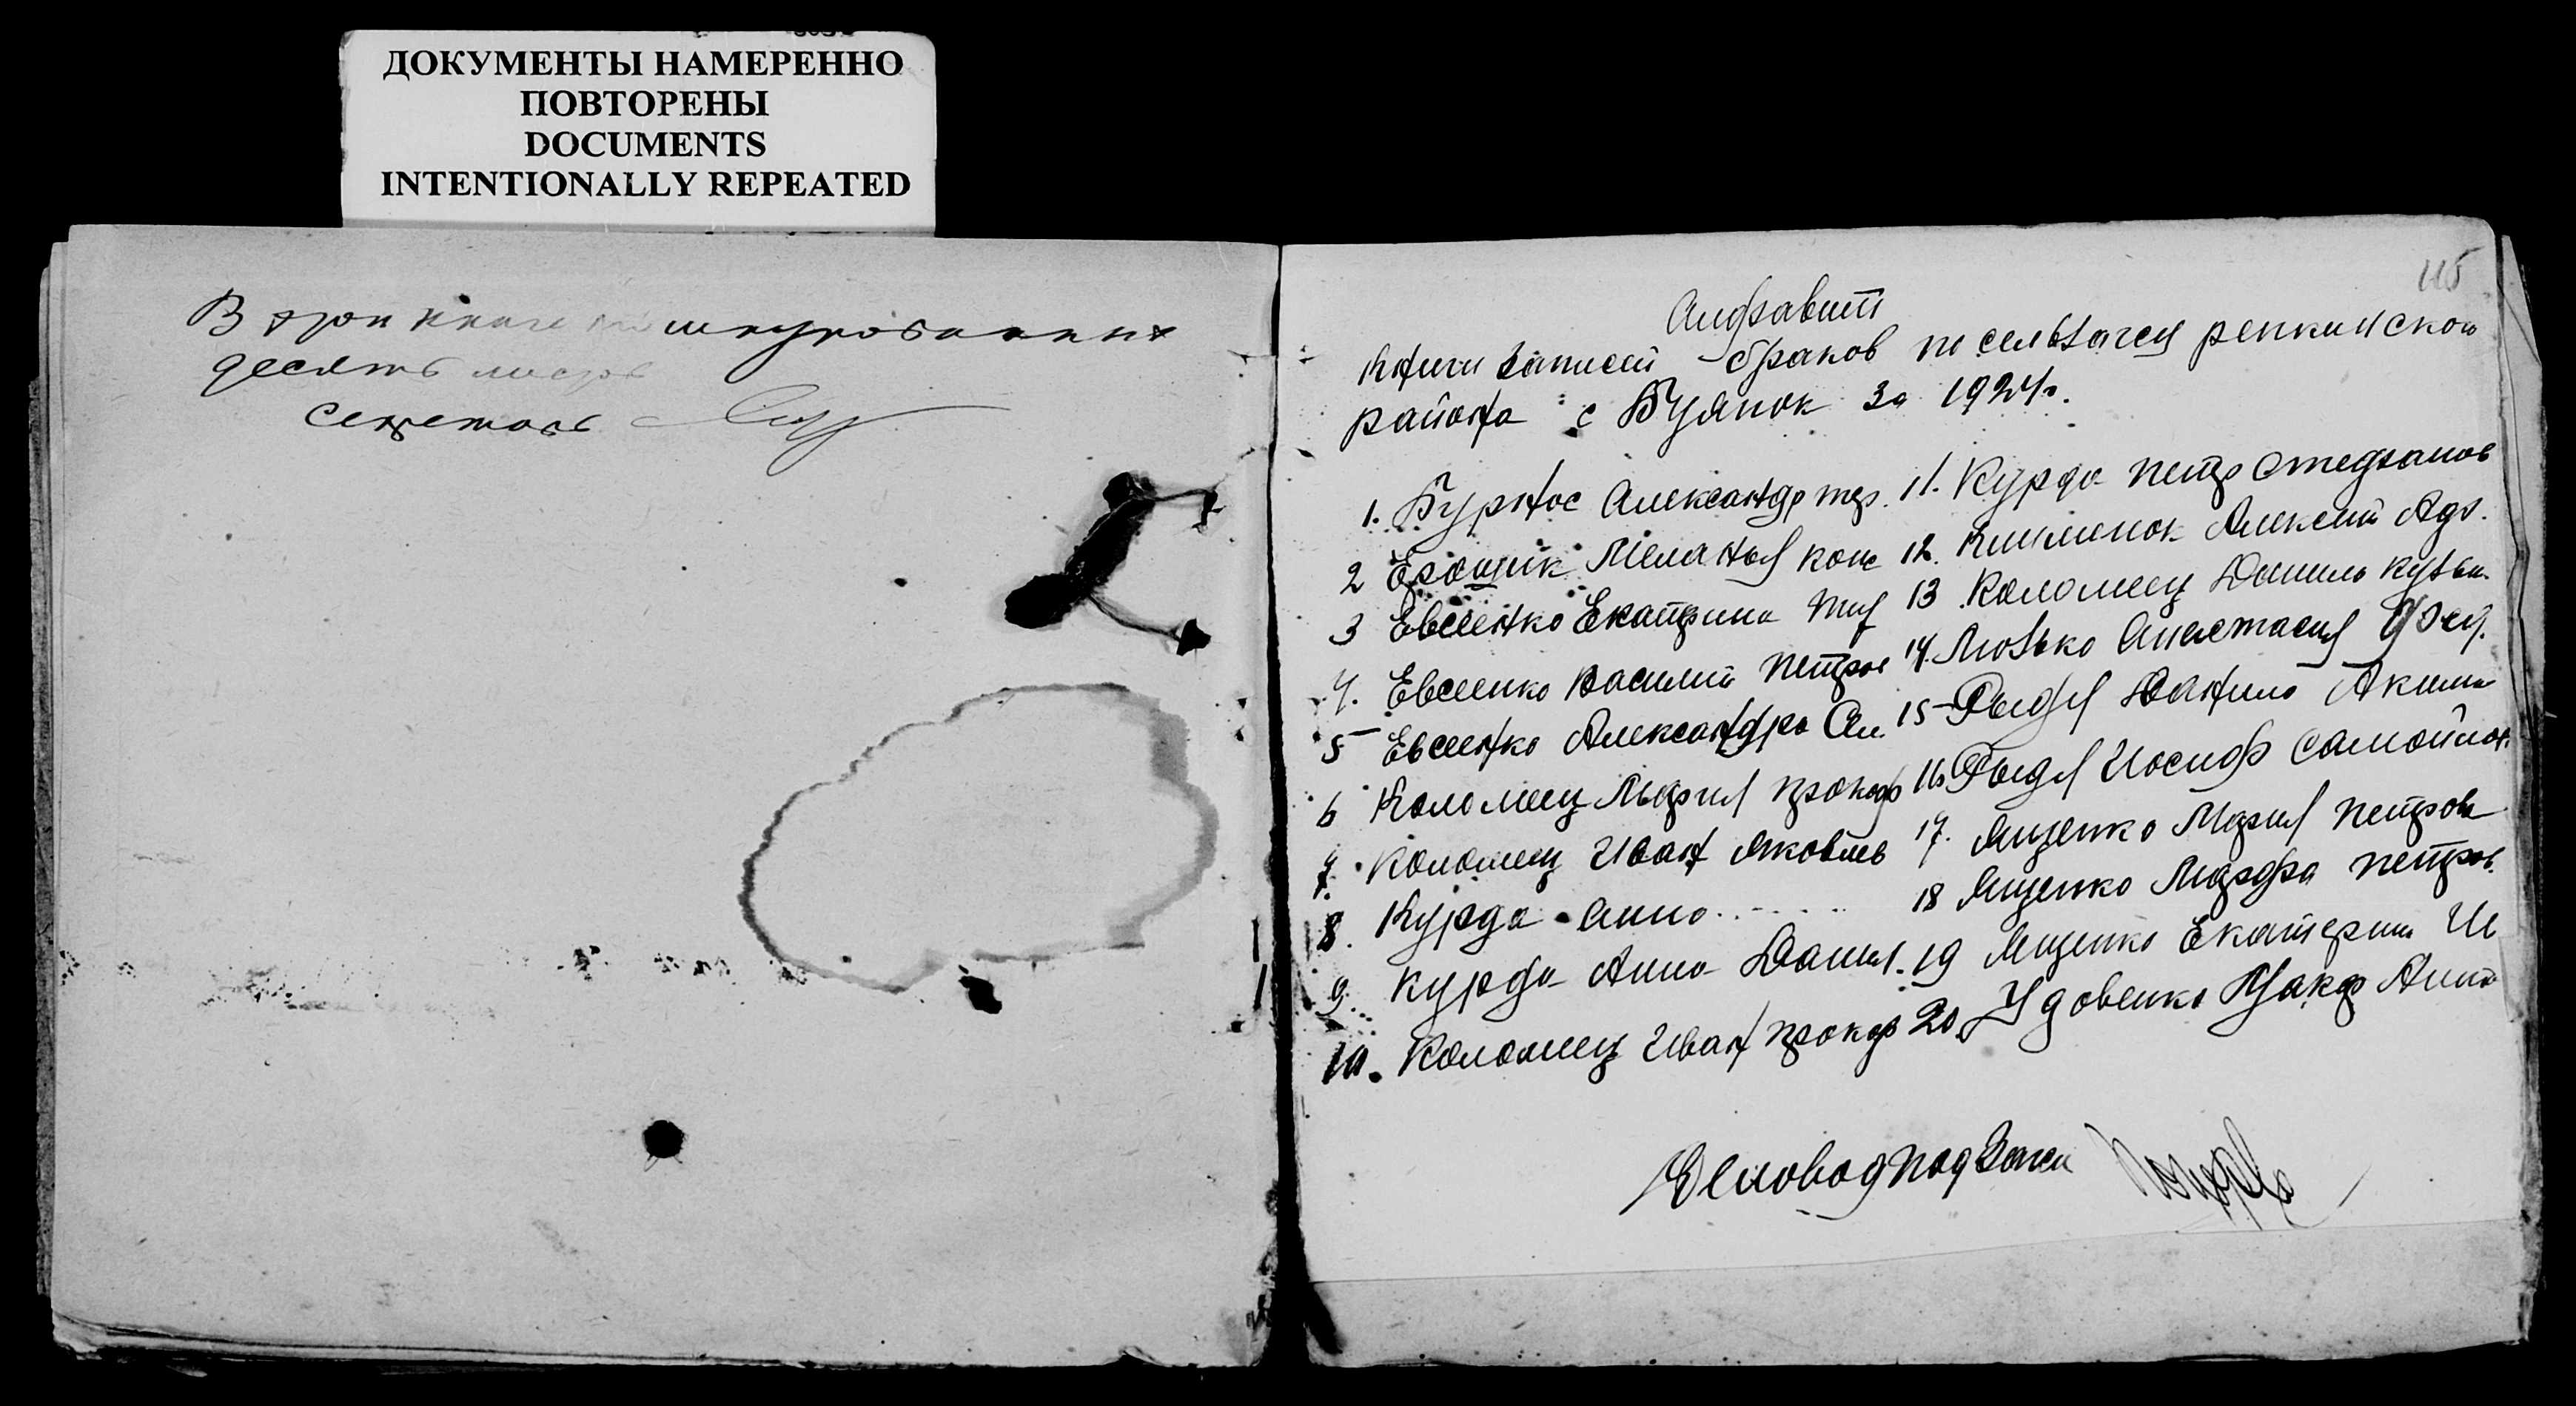 ДОКУМЕНТЫ НАМЕРЕННО
ПОВТОРЕНЫ
DOCUMENTS
INTENTIONALLY REPEATED
В этой книге шнурованных
десять листов
Секретарь
115
Алфавит
Книги записей браков по сельзагсу репкинского
района с Буянок За 1924г.
1. Бурнос Александр
2 Ерощик Меланья конс
3 Евсеенко Екатрина
4. Евсеенко Василий петров
5 Евсеенко Александра Ал.
6 Коломиец Мария прокоф
7. Коломиец Иван яковлев
8. Курда Анна
9. Курда Анна Данил.
10. Коломиец Иван прокоф
11. Курда петр Стефанов
12. Клименок Алексей
13 Коломиец Данило кузьм.
14. Люзько Анастасия
15 Рыдя Данило Акими
16 Рыдя Иосиф самойлов.
17. Ященко Мария петров
18 Ященко Марфа петров.
19 Ященко Екатерин И
20. Удовенко
Деловод подзаги